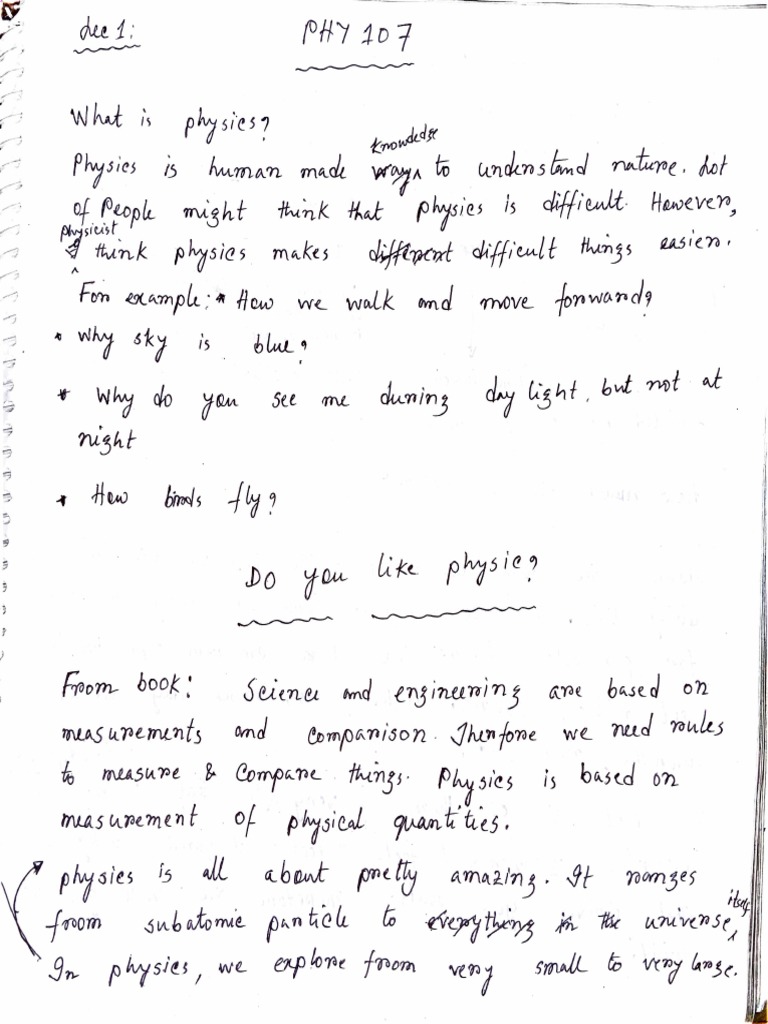 Lec 1: PHY 107
What is physics?
knowledge
Physics is human made way to understand nature. Lot
of People might think that physics is difficult. However,
physicist
I think physics makes different difficult things easier.
For example: * How we walk and move forward?
* Why sky is blue?
* Why do you see me during day light, but not at
night
* How birds fly?
Do you like physic?
From book: Science and engineering are based on
measurements and comparison. Therfore we need rules
to measure & Compare things. Physics is based on
measurement of physical quantities.
physics is all about pretty amazing. It ranges
itself
from subatomic particle to everything in the universe,
In physics, we explore from very small to very large.